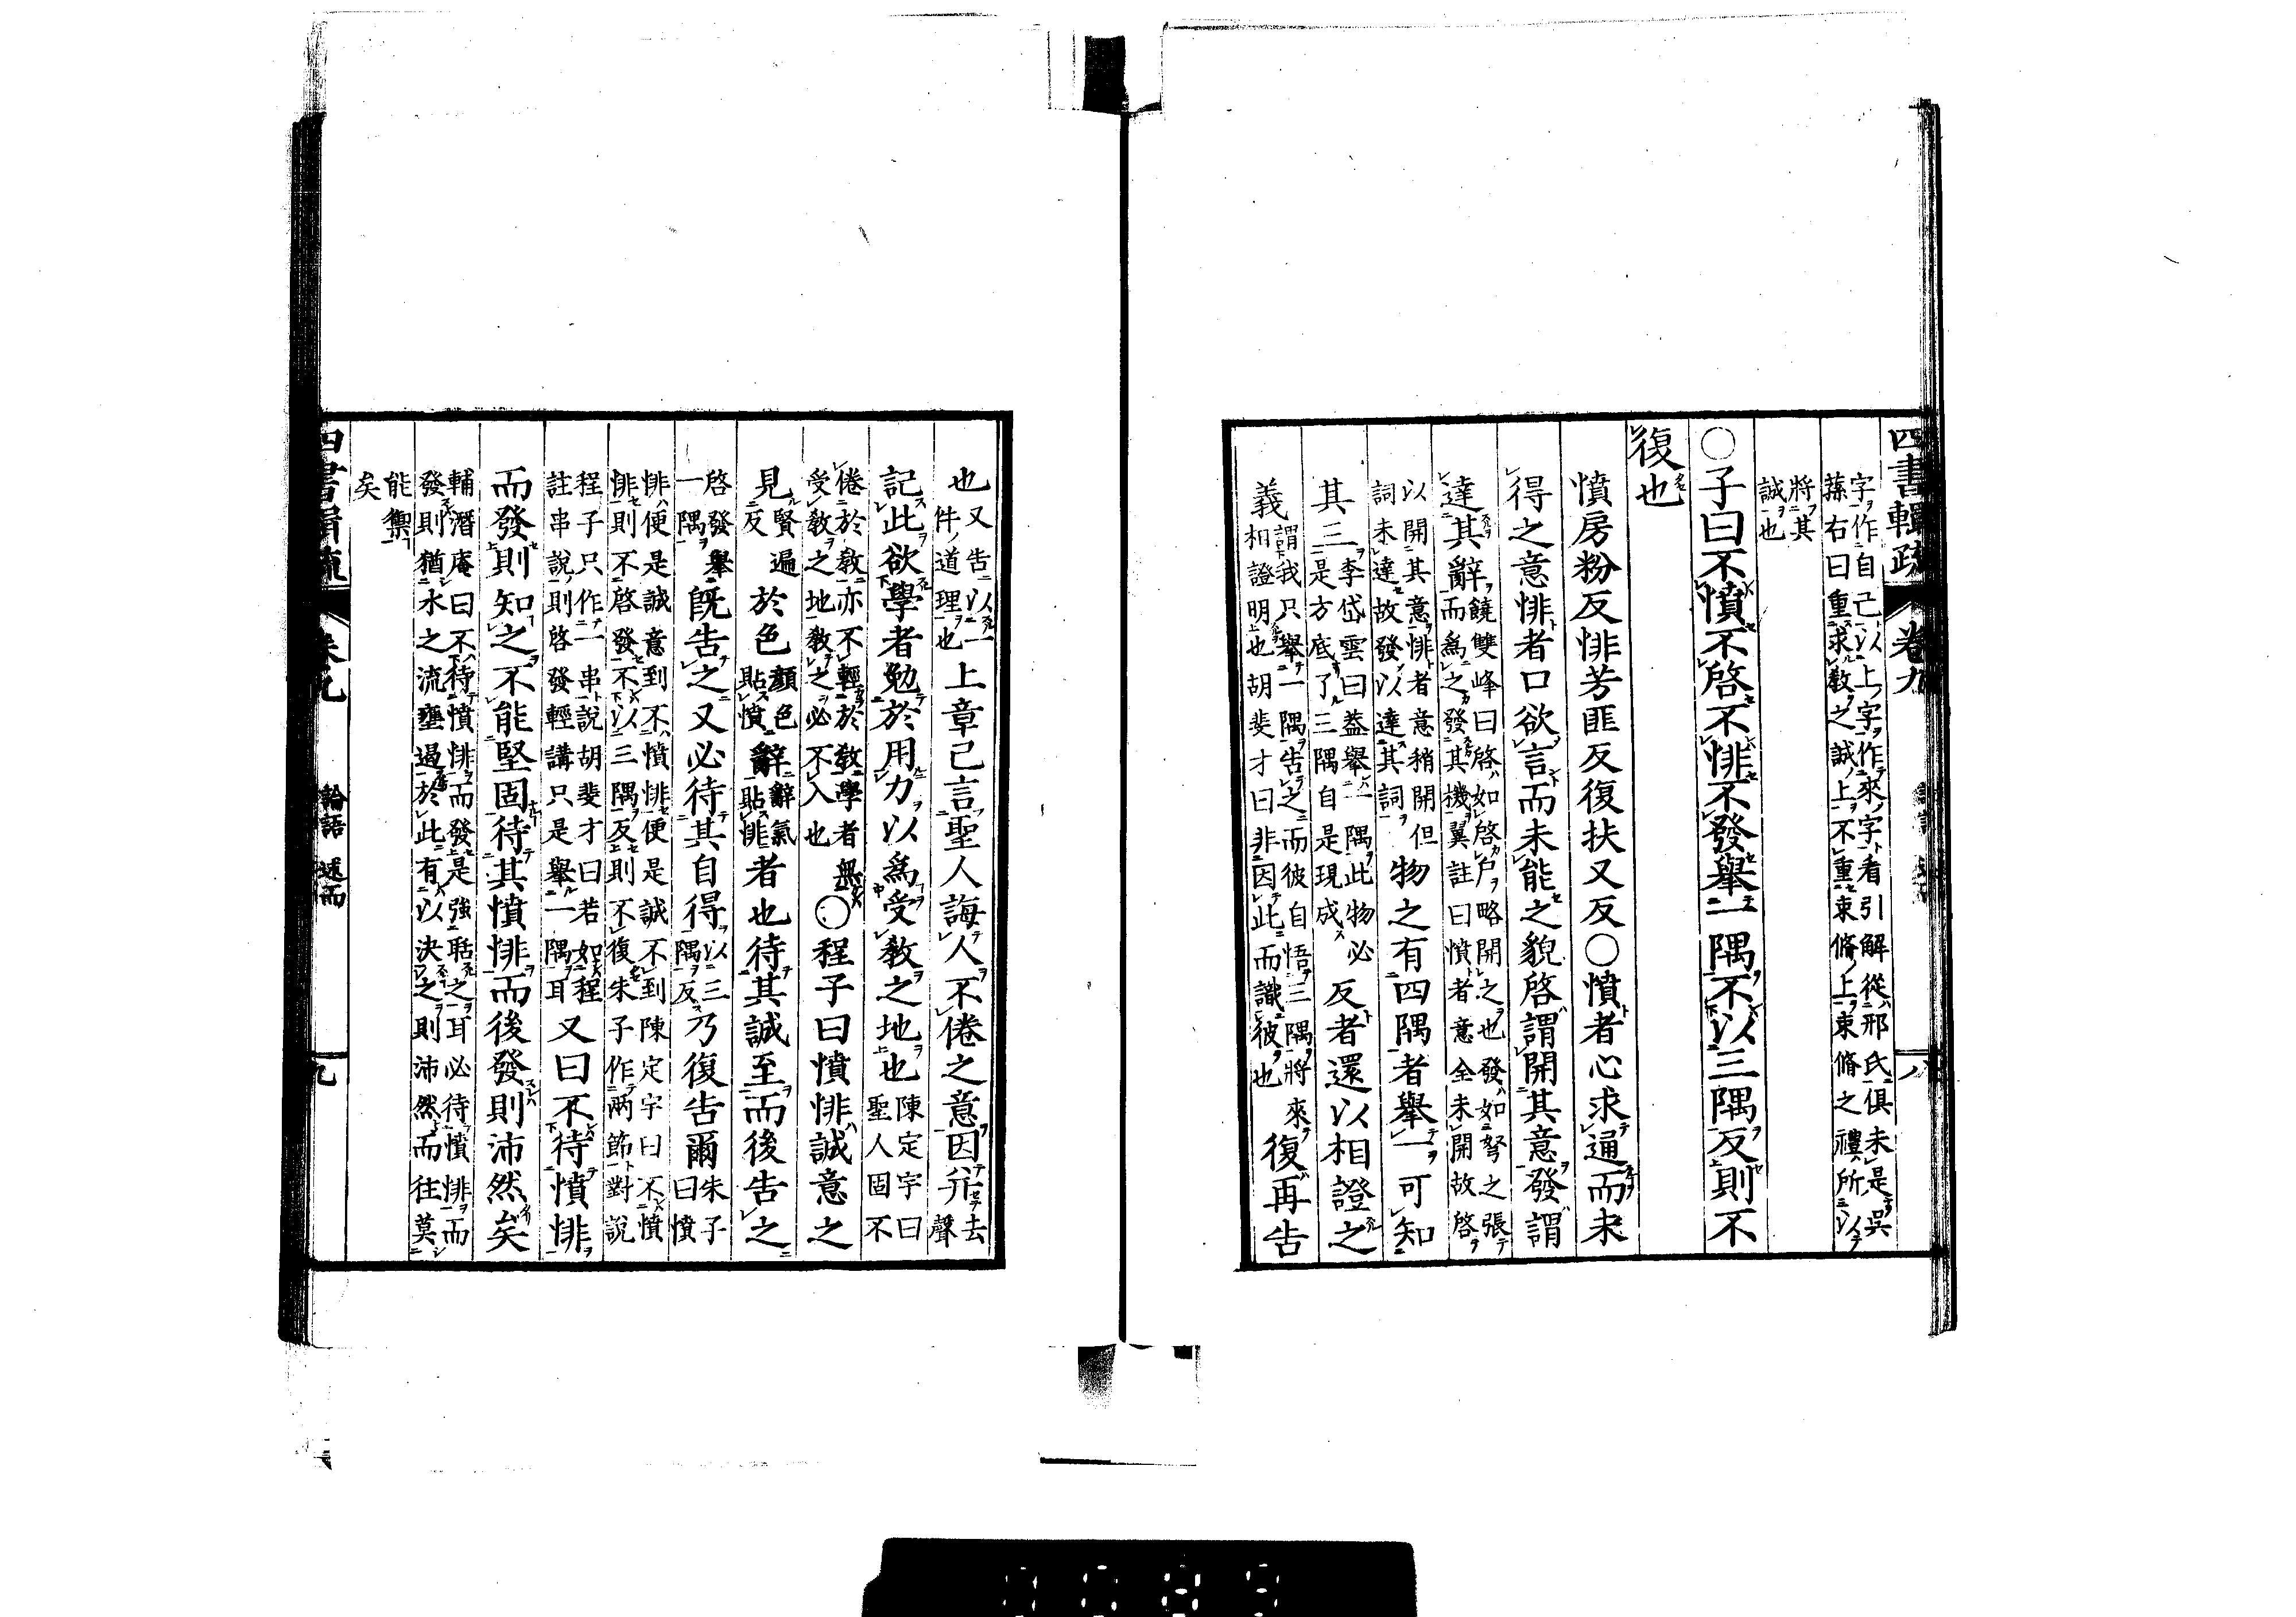 四書輯疏 卷九 八
字作自己以上字作來字看引解從邢氏俱未是吳
蓀右曰重求教之誠上不重束脩上束脩之禮所以
將其
誠也
○子曰不憤不啓不悱不發舉一隅不以三隅反則不
復也
憤房粉反悱芳匪反復扶又反○憤者心求通而未
得之意悱者口欲言而未能之貌啓謂開其意發謂
達其辭
饒雙峰曰啓如啓戶略開之也發如弩之張
而爲之發其機翼註曰憤者意全未開故啓
以開其意悱者意稍開但
詞未達故發以達其詞
物之有四隅者舉一可知
其三
李岱雲曰葢舉一隅此物必
是方底了三隅自是現成
反者還以相證之
義
謂我只舉一隅告之而彼自悟三隅將來
相證明也胡斐才曰非因此而識彼也
復再告
也
又告以一
件道理也
上章已言聖人誨人不倦之意因幷
去
聲
記此欲學者勉於用力以爲受教之地也
陳定宇曰
聖人固不
倦於教亦不輕於教學者無
受教之地教之必不入也
○程子曰憤悱誠意之
見
賢遍
反
於色
顏色
貼憤
辭
辭氣
貼悱
者也待其誠至而後告之
啓發舉
一隅
旣告之又必待其自得
以三
隅反
乃復告爾
朱子
曰憤
悱便是誠意到不憤悱便是誠不到陳定宇曰不憤
悱則不啓發不以三隅反則不復朱子作兩節對說
程子只作一串說胡斐才曰若如程
註串說則啓發輕講只是舉一隅耳
又曰不待憤悱
而發則知之不能堅固待其憤悱而後發則沛然矣
輔潛庵曰不待憤悱而發是強聒之耳必待憤悱而
發則猶水之流壅遏於此有以決之則沛然而往莫
能禦
矣
四書輯疏 卷九 論語 述而 九